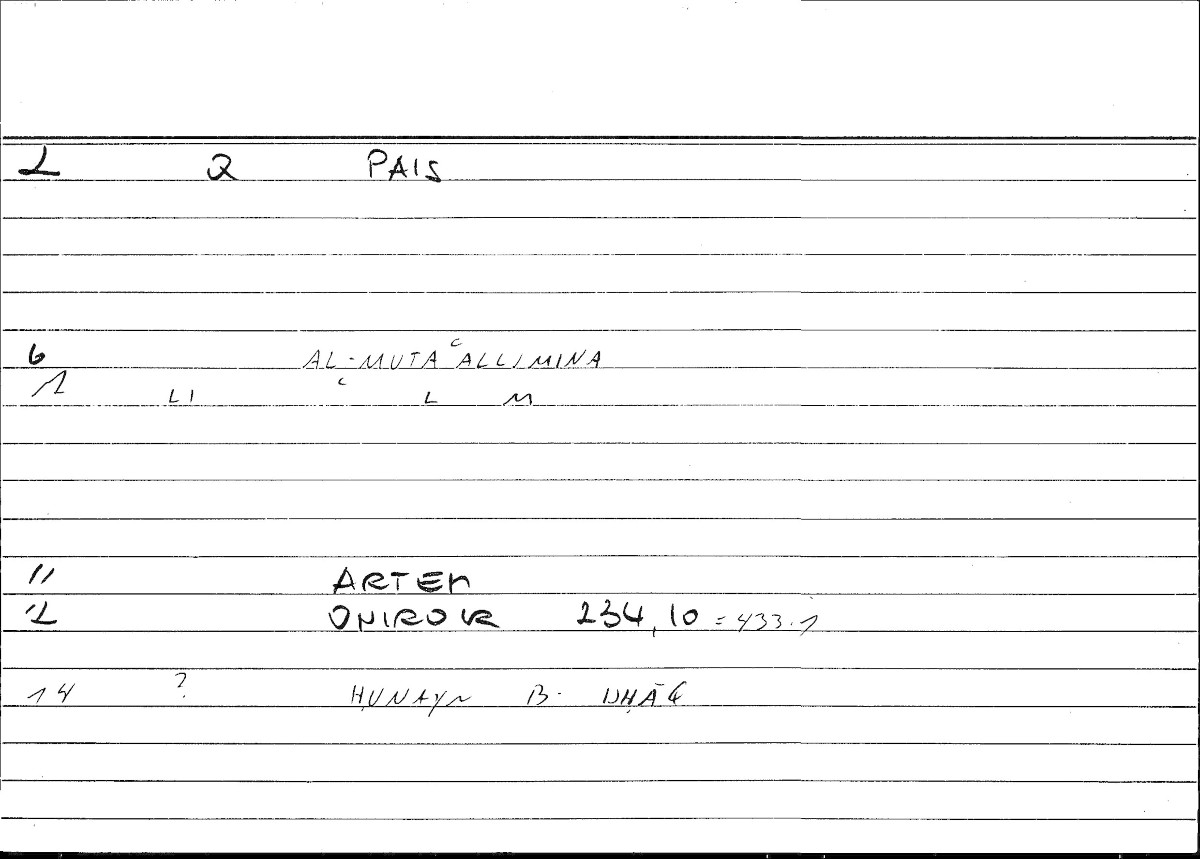 2 Q PAIS
6 AL-MUTAʿALLIMINA
1 LI ʿ L M
11 ARTEM
12 ONIROK 234,10 = 433.1
14 ? ḤUNAYN B.